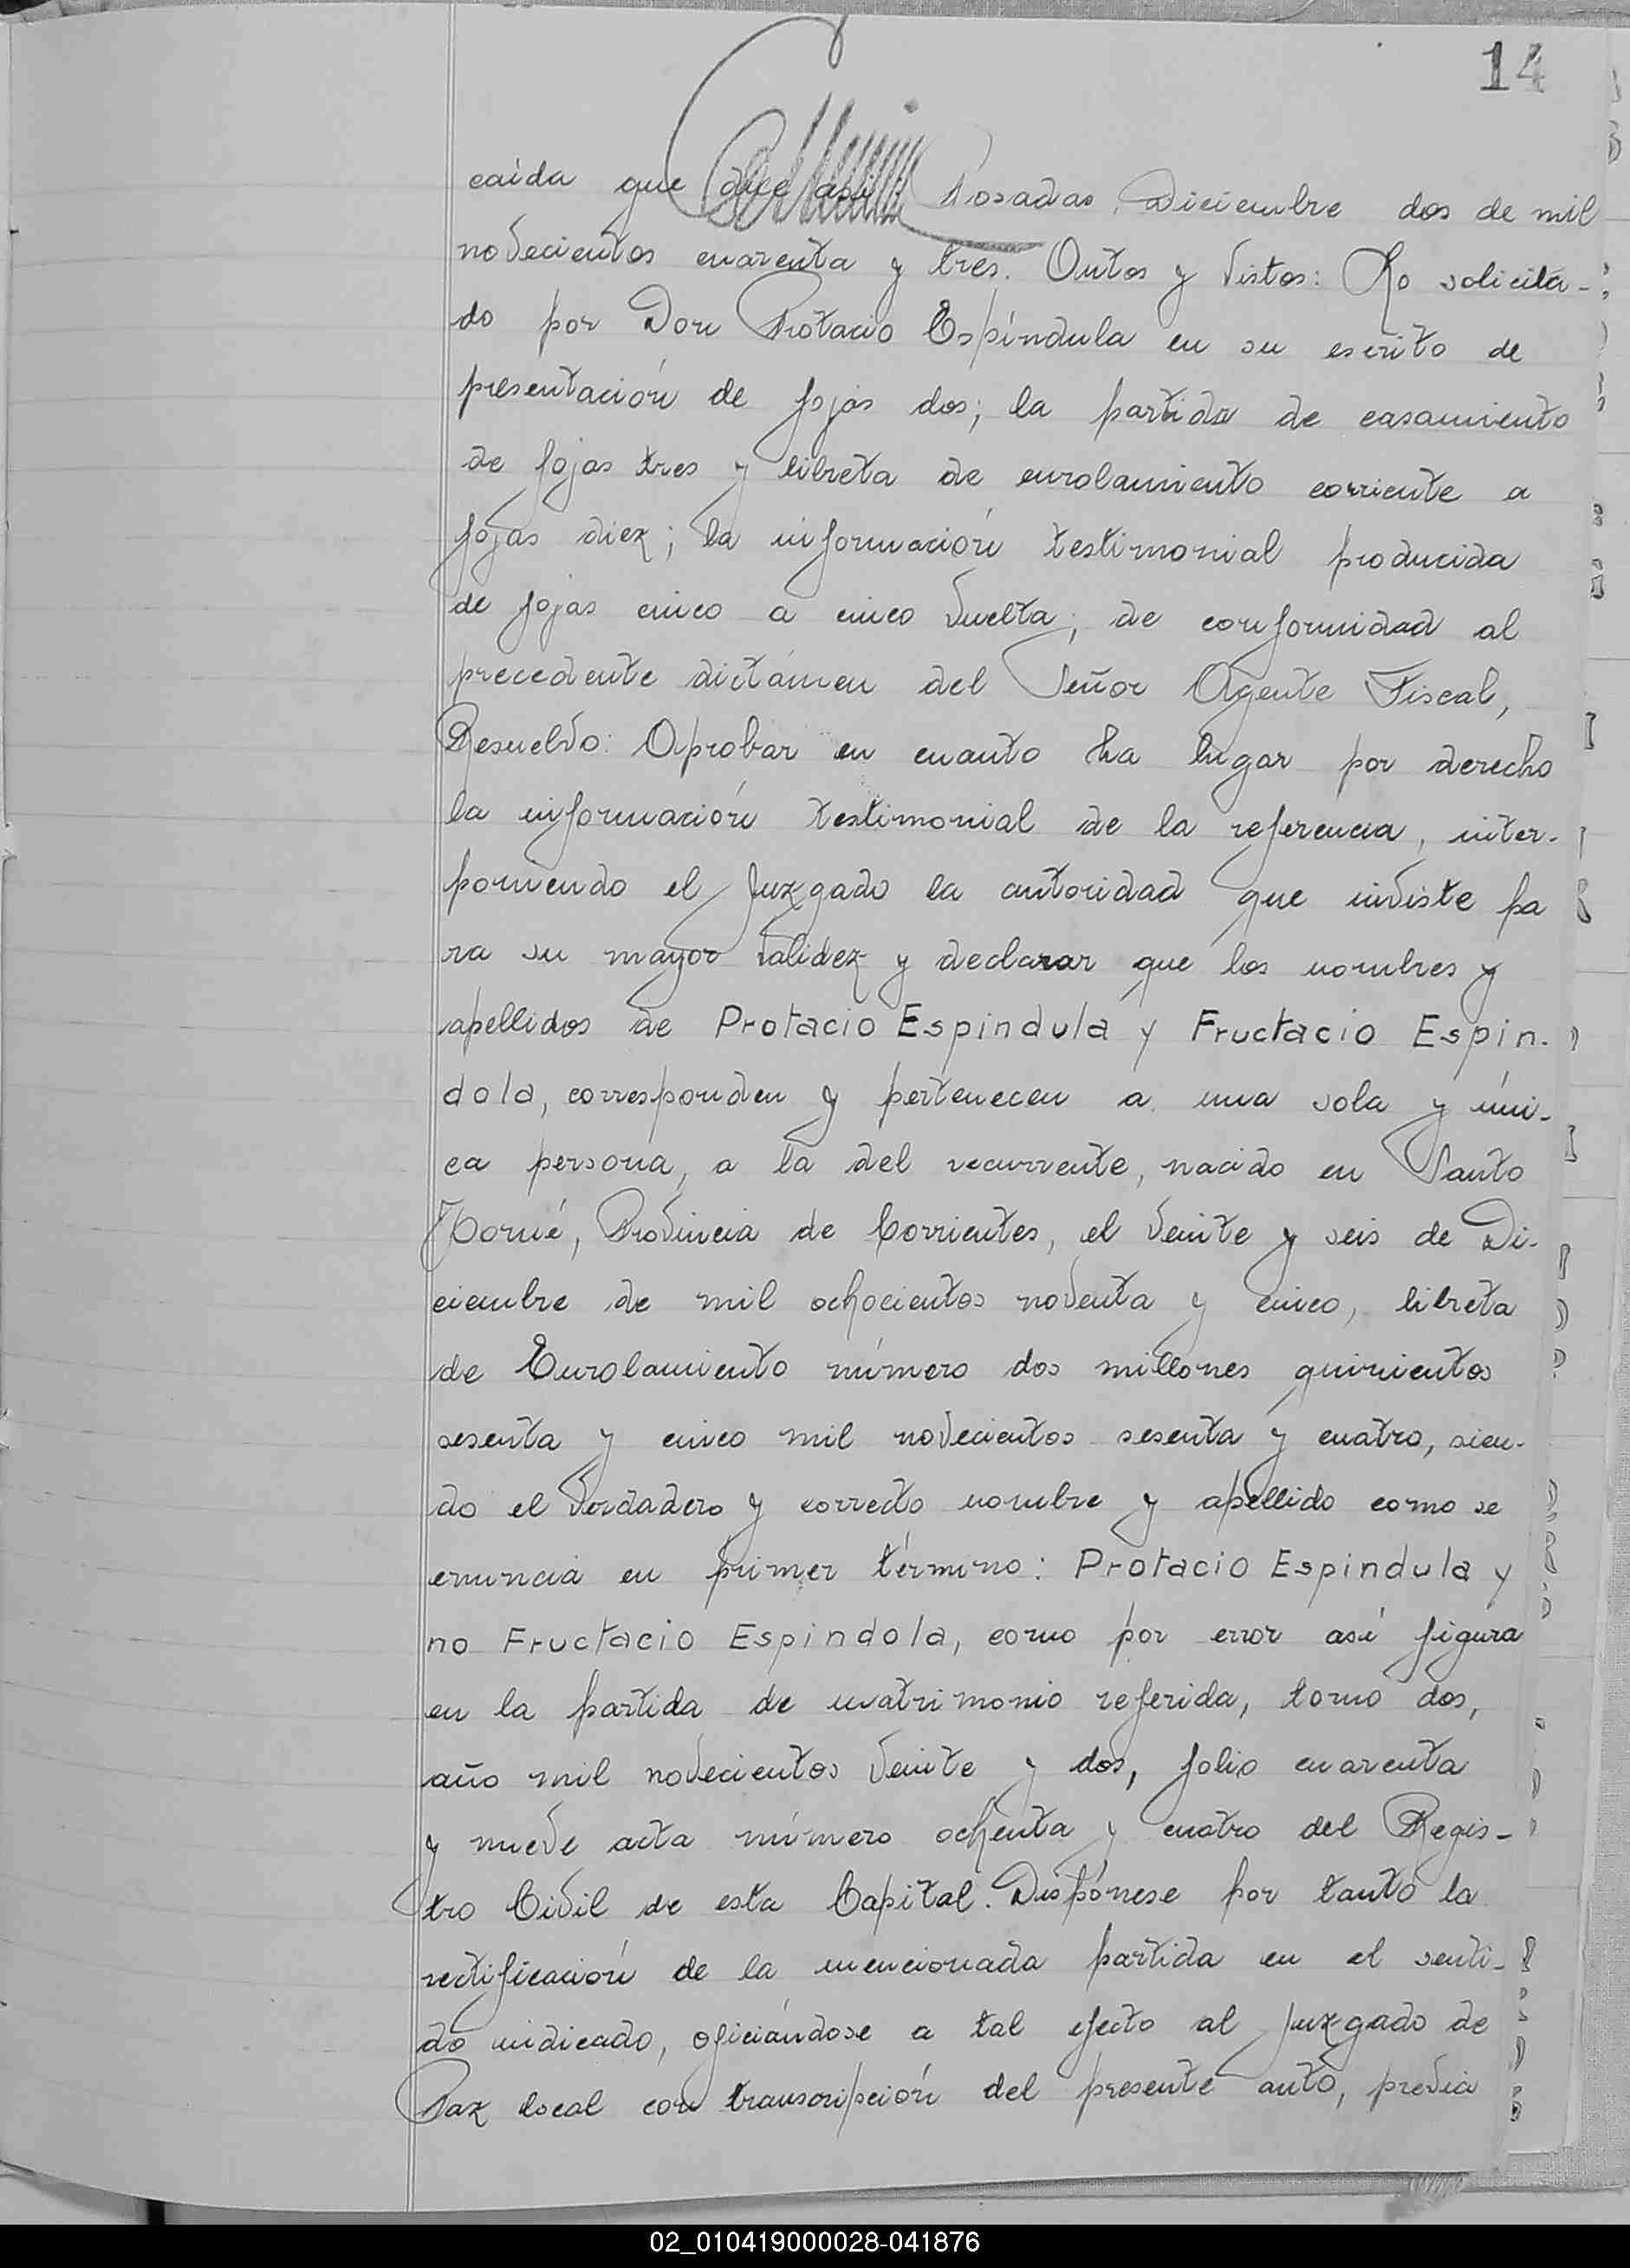 14
caída que dice así: Posadas, Diciembre dos de mil
novecientos cuarenta y tres. Autos y Vistos: Lo solicita-
do por Don Protacio Espíndula en su escrito de
presentación de fojas dos; la partida de casamiento
de fojas tres y libreta de enrolamiento corriente a
fojas diez; la información testimonial producida
de fojas cinco a cinco vuelta; de conformidad al
precedente dictámen del Señor Agente Fiscal,
Resuelvo: Aprobar en cuanto ha lugar por derecho
la información testimonial de la referencia, inter-
poniendo el Juzgado la autoridad que inviste pa
ra su mayor validez y declarar que los nombres y
apellidos de Protacio Espindula y Fructacio Espin-
dola, corresponden y pertenecen a una sola y úni-
ca persona, a la del recurrente, nacido en Santo
Tomé, Provincia de Corrientes, el veinte y seis de Di-
ciembre de mil ochocientos noventa y cinco, libreta
de Enrolamiento número dos millones quinientos
sesenta y cinco mil novecientos sesenta y cuatro, sien-
do el verdadero y correcto nombre y apellido como se
enuncia en primer término: Protacio Espindula y
no Fructacio Espindola, como por error así figura
en la partida de matrimonio referida, tomo dos,
año mil novecientos veinte y dos, folio cuarenta
y nueve acta número ochenta y cuatro del Regis-
tro Civil de esta Capital. Dispónese por tanto la
rectificación de la mencionada partida en el senti-
do indicado, oficiándose a tal efecto al Juzgado de
Paz local con transcripción del presente auto, previa
02_010419000028-041876